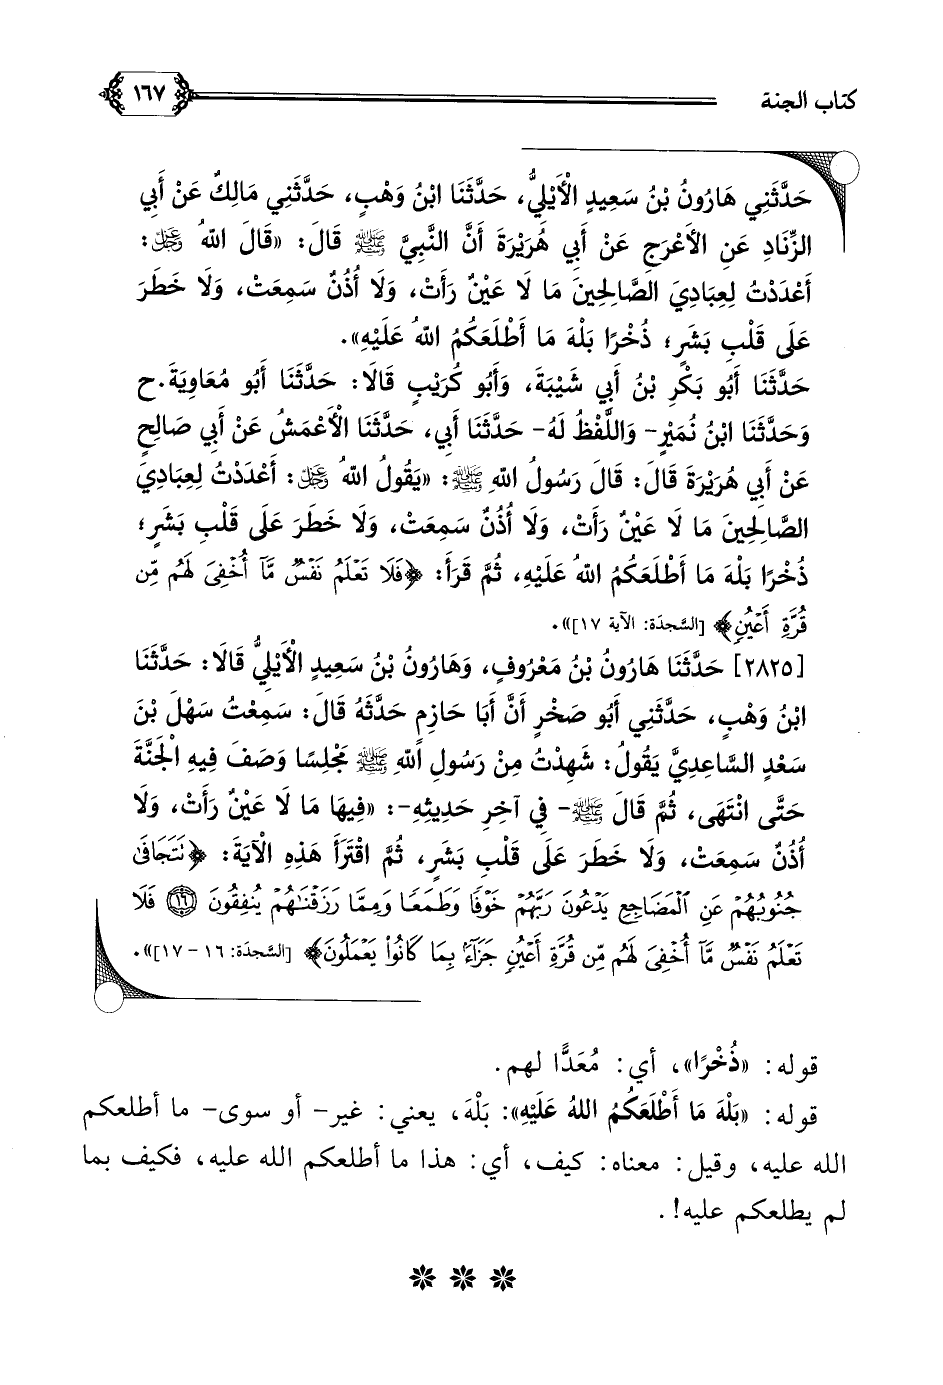 كتاب الجنة
١٦٧
حَدَّثَنِي هَارُونُ بْنُ سَعِيدٍ الْأَيْلِيُّ، حَدَّثَنَا ابْنُ وَهْبٍ، حَدَّثَنِي مَالِكٌ عَنْ أَبِي
الزِّنَادِ عَنِ الْأَعْرَجِ عَنْ أَبِي هُرَيْرَةَ أَنَّ النَّبِيَّ ﷺ قَالَ: «قَالَ اللهُ عَزَّ وَجَلَّ:
أَعْدَدْتُ لِعِبَادِيَ الصَّالِحِينَ مَا لَا عَيْنٌ رَأَتْ، وَلَا أُذُنٌ سَمِعَتْ، وَلَا خَطَرَ
عَلَى قَلْبِ بَشَرٍ؛ ذُخْرًا بَلْهَ مَا أَطْلَعَكُمُ اللهُ عَلَيْهِ».
حَدَّثَنَا أَبُو بَكْرِ بْنُ أَبِي شَيْبَةَ، وَأَبُو كُرَيْبٍ قَالَا: حَدَّثَنَا أَبُو مُعَاوِيَةَ.ح
وَحَدَّثَنَا ابْنُ نُمَيْرٍ- وَاللَّفْظُ لَهُ- حَدَّثَنَا أَبِي، حَدَّثَنَا الْأَعْمَشُ عَنْ أَبِي صَالِحٍ
عَنْ أَبِي هُرَيْرَةَ قَالَ: قَالَ رَسُولُ اللهِ ﷺ: «يَقُولُ اللهُ عَزَّ وَجَلَّ: أَعْدَدْتُ لِعِبَادِيَ
الصَّالِحِينَ مَا لَا عَيْنٌ رَأَتْ، وَلَا أُذُنٌ سَمِعَتْ، وَلَا خَطَرَ عَلَى قَلْبِ بَشَرٍ؛
ذُخْرًا بَلْهَ مَا أَطْلَعَكُمُ اللهُ عَلَيْهِ، ثُمَّ قَرَأَ: ﴿فَلَا تَعْلَمُ نَفْسٌ مَّآ أُخْفِىَ لَهُم مِّن
قُرَّةِ أَعْيُنٍ﴾ [السَّجدَة: الآية ١٧]».
[٢٨٢٥] حَدَّثَنَا هَارُونُ بْنُ مَعْرُوفٍ، وَهَارُونُ بْنُ سَعِيدٍ الْأَيْلِيُّ قَالَا: حَدَّثَنَا
ابْنُ وَهْبٍ، حَدَّثَنِي أَبُو صَخْرٍ أَنَّ أَبَا حَازِمٍ حَدَّثَهُ قَالَ: سَمِعْتُ سَهْلَ بْنَ
سَعْدٍ السَّاعِدِيَّ يَقُولُ: شَهِدْتُ مِنْ رَسُولِ اللهِ ﷺ مَجْلِسًا وَصَفَ فِيهِ الْجَنَّةَ
حَتَّى انْتَهَى، ثُمَّ قَالَ ﷺ- فِي آخِرِ حَدِيثِهِ-: «فِيهَا مَا لَا عَيْنٌ رَأَتْ، وَلَا
أُذُنٌ سَمِعَتْ، وَلَا خَطَرَ عَلَى قَلْبِ بَشَرٍ، ثُمَّ اقْتَرَأَ هَذِهِ الْآيَةَ: ﴿نَتَجَافَىٰ
جُنُوبُهُمْ عَنِ ٱلْمَضَاجِعِ يَدْعُونَ رَبَّهُمْ خَوْفًا وَطَمَعًا وَمِمَّا رَزَقْنَٰهُمْ يُنفِقُونَ ۝١٦ فَلَا
تَعْلَمُ نَفْسٌ مَّآ أُخْفِىَ لَهُم مِّن قُرَّةِ أَعْيُنٍ جَزَآءًۢ بِمَا كَانُوا۟ يَعْمَلُونَ﴾ [السَّجدَة: ١٦ - ١٧]».
قوله: «ذُخْرًا»، أي: مُعَدًّا لهم.
قوله: «بَلْهَ مَا أَطْلَعَكُمُ اللهُ عَلَيْهِ»: بَلْهَ، يعني: غير- أو سوى- ما أطلعكم
الله عليه، وقيل: معناه: كيف، أي: هذا ما أطلعكم الله عليه، فكيف بما
لم يطلعكم عليه!.